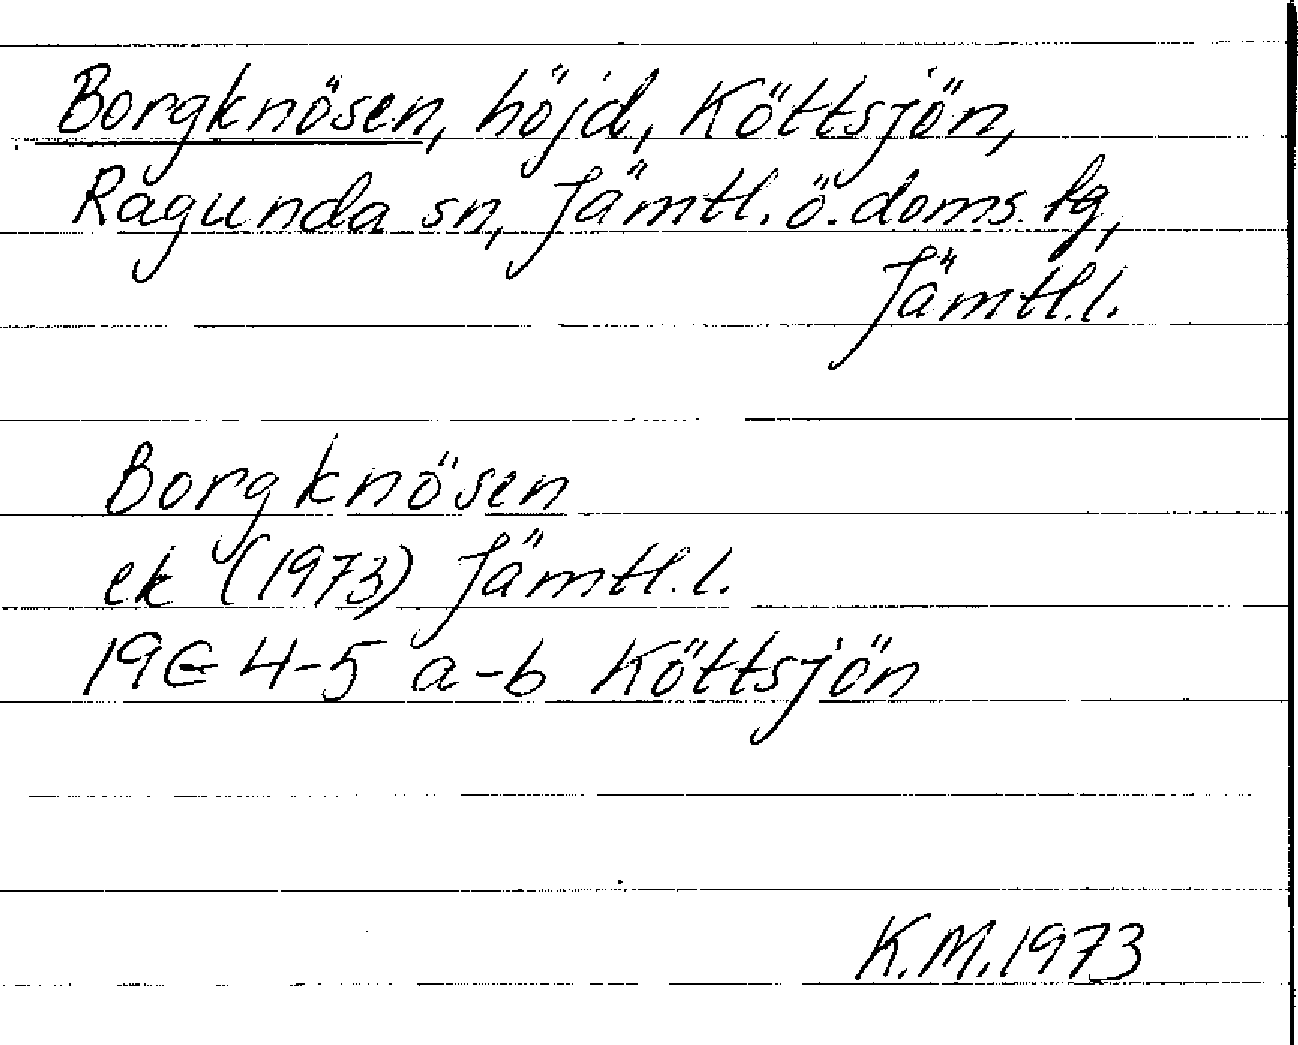 Borgknösen, höjd, Köttsjön,
Ragunda sn, Jämtl. ö. doms. tg,
Jämtl. l.
Borgknösen
ek (1973) Jämtl. l.
19E 4-5 a-b Köttsjön
K.M. 1973